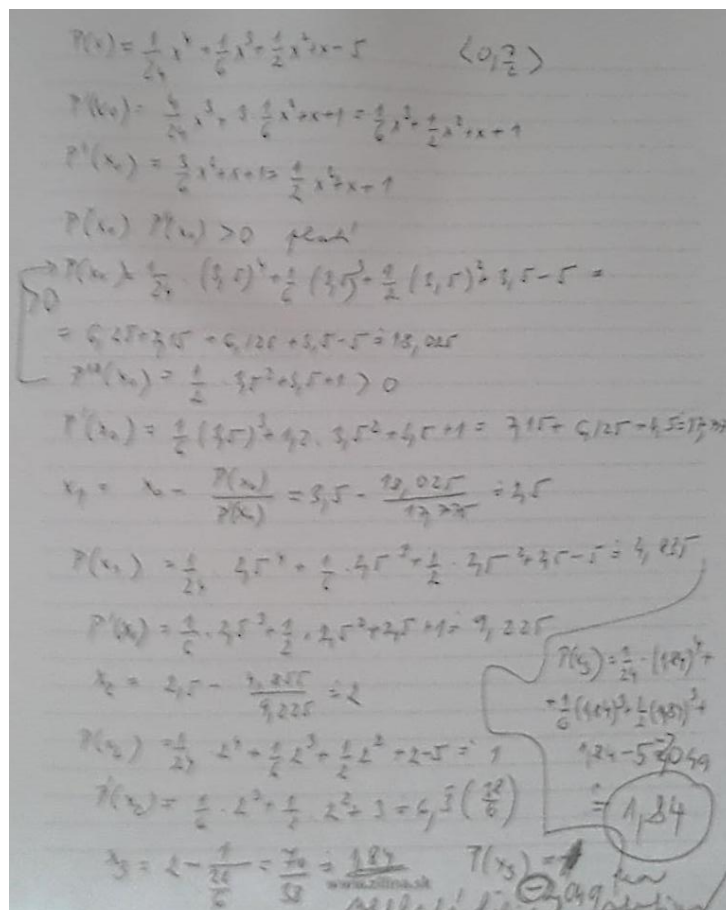 P(x) = 1/24 x⁴ + 1/6 x³ + 1/2 x² + x - 5 ⟨0, 7/2⟩
P'(x₀) = 4/24 x³ + 3 · 1/6 x² + x + 1 = 1/6 x³ + 1/2 x² + x + 1
P''(x₀) = 3/6 x² + x + 1 = 1/2 x² + x + 1
P(x₀) P''(x₀) > 0 platí
P(x₀) = 1/24 · (3,5)⁴ + 1/6 (3,5)³ + 1/2 (3,5)² + 3,5 - 5 =
>0
= 6,25 + 7,15 + 6,125 + 3,5 - 5 ≐ 18,025
P''(x₀) = 1/2 3,5² + 3,5 + 1 > 0
P'(x₀) = 1/6 (3,5)³ + 1,2 · 3,5² + 3,5 + 1 = 7,15 + 6,125 + 4,5 ≐
x₁ = x₀ - P(x₀)/P'(x₀) = 3,5 - 18,025/17,775 ≐ 2,5
P(x₁) = 1/24 · 2,5⁴ + 1/6 · 2,5³ + 1/2 · 2,5² + 2,5 - 5 ≐ 4,855
P'(x₁) = 1/6 · 2,5³ + 1/2 · 2,5² + 2,5 + 1 ≐ 9,225
x₂ = 2,5 - 4,855/9,225 ≐ 2
P(x₂) = 1/24 2⁴ + 1/6 2³ + 1/2 2² + 2 - 5 ≐ 1
P'(x₂) = 1/6 · 2³ + 1/2 · 2² + 3 = 6,3 (38/6)
x₃ = 2 - 1/(38/6) = 70/38 ≐ 1,84
P(x₃) = 1/24 · (1,84)⁴ +
+ 1/6 (1,84)³ + 1/2 (1,84)³ +
1,84 - 5 = 0,49
≐ 1,84
P(x₃) =
- 0,49
www.zilina.sk